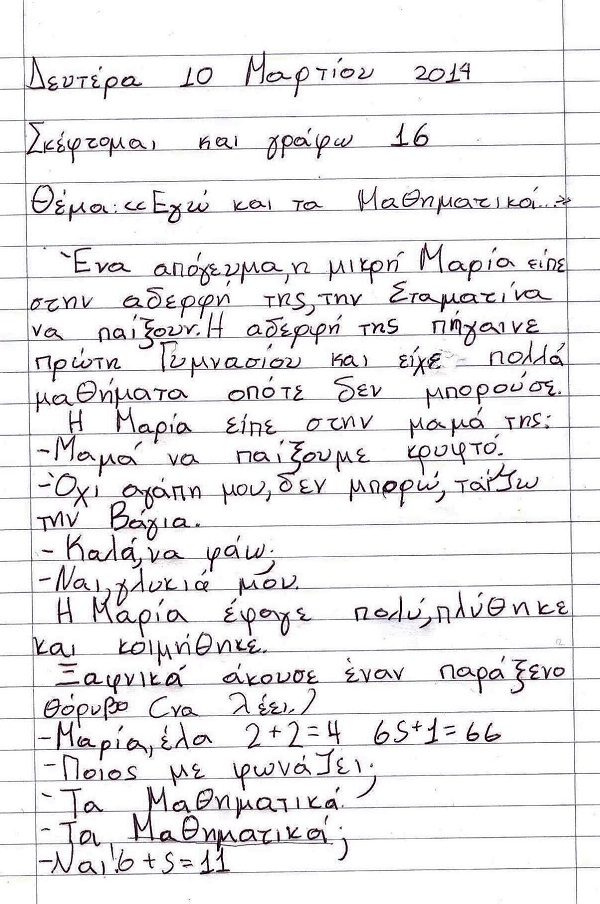 Δευτέρα 10 Μαρτίου 2014
Σκέφτομαι και γράφω 16
Θέμα: «Εγώ και τα Μαθηματικά...»
Ένα απόγευμα, η μικρή Μαρία είπε
στην αδερφή της, την Σταματίνα
να παίξουν. Η αδερφή της πήγαινε
πρώτη Γυμνασίου και είχε πολλά
μαθήματα οπότε δεν μπορούσε.
Η Μαρία είπε στην μαμά της:
-Μαμά να παίξουμε κρυφτό.
-Όχι αγάπη μου, δεν μπορώ, ταΐζω
την Βάγια.
- Καλά, να φάω;
-Ναι, γλυκιά μου.
Η Μαρία έφαγε πολύ, πλύθηκε
και κοιμήθηκε.
Ξαφνικά άκουσε έναν παράξενο
θόρυβο (να λέει.)
-Μαρία, έλα 2+2=4 65+1=66
-Ποιος με φωνάζει;
-Τα Μαθηματικά.
-Τα Μαθηματικά;
-Ναι! 6+5=11